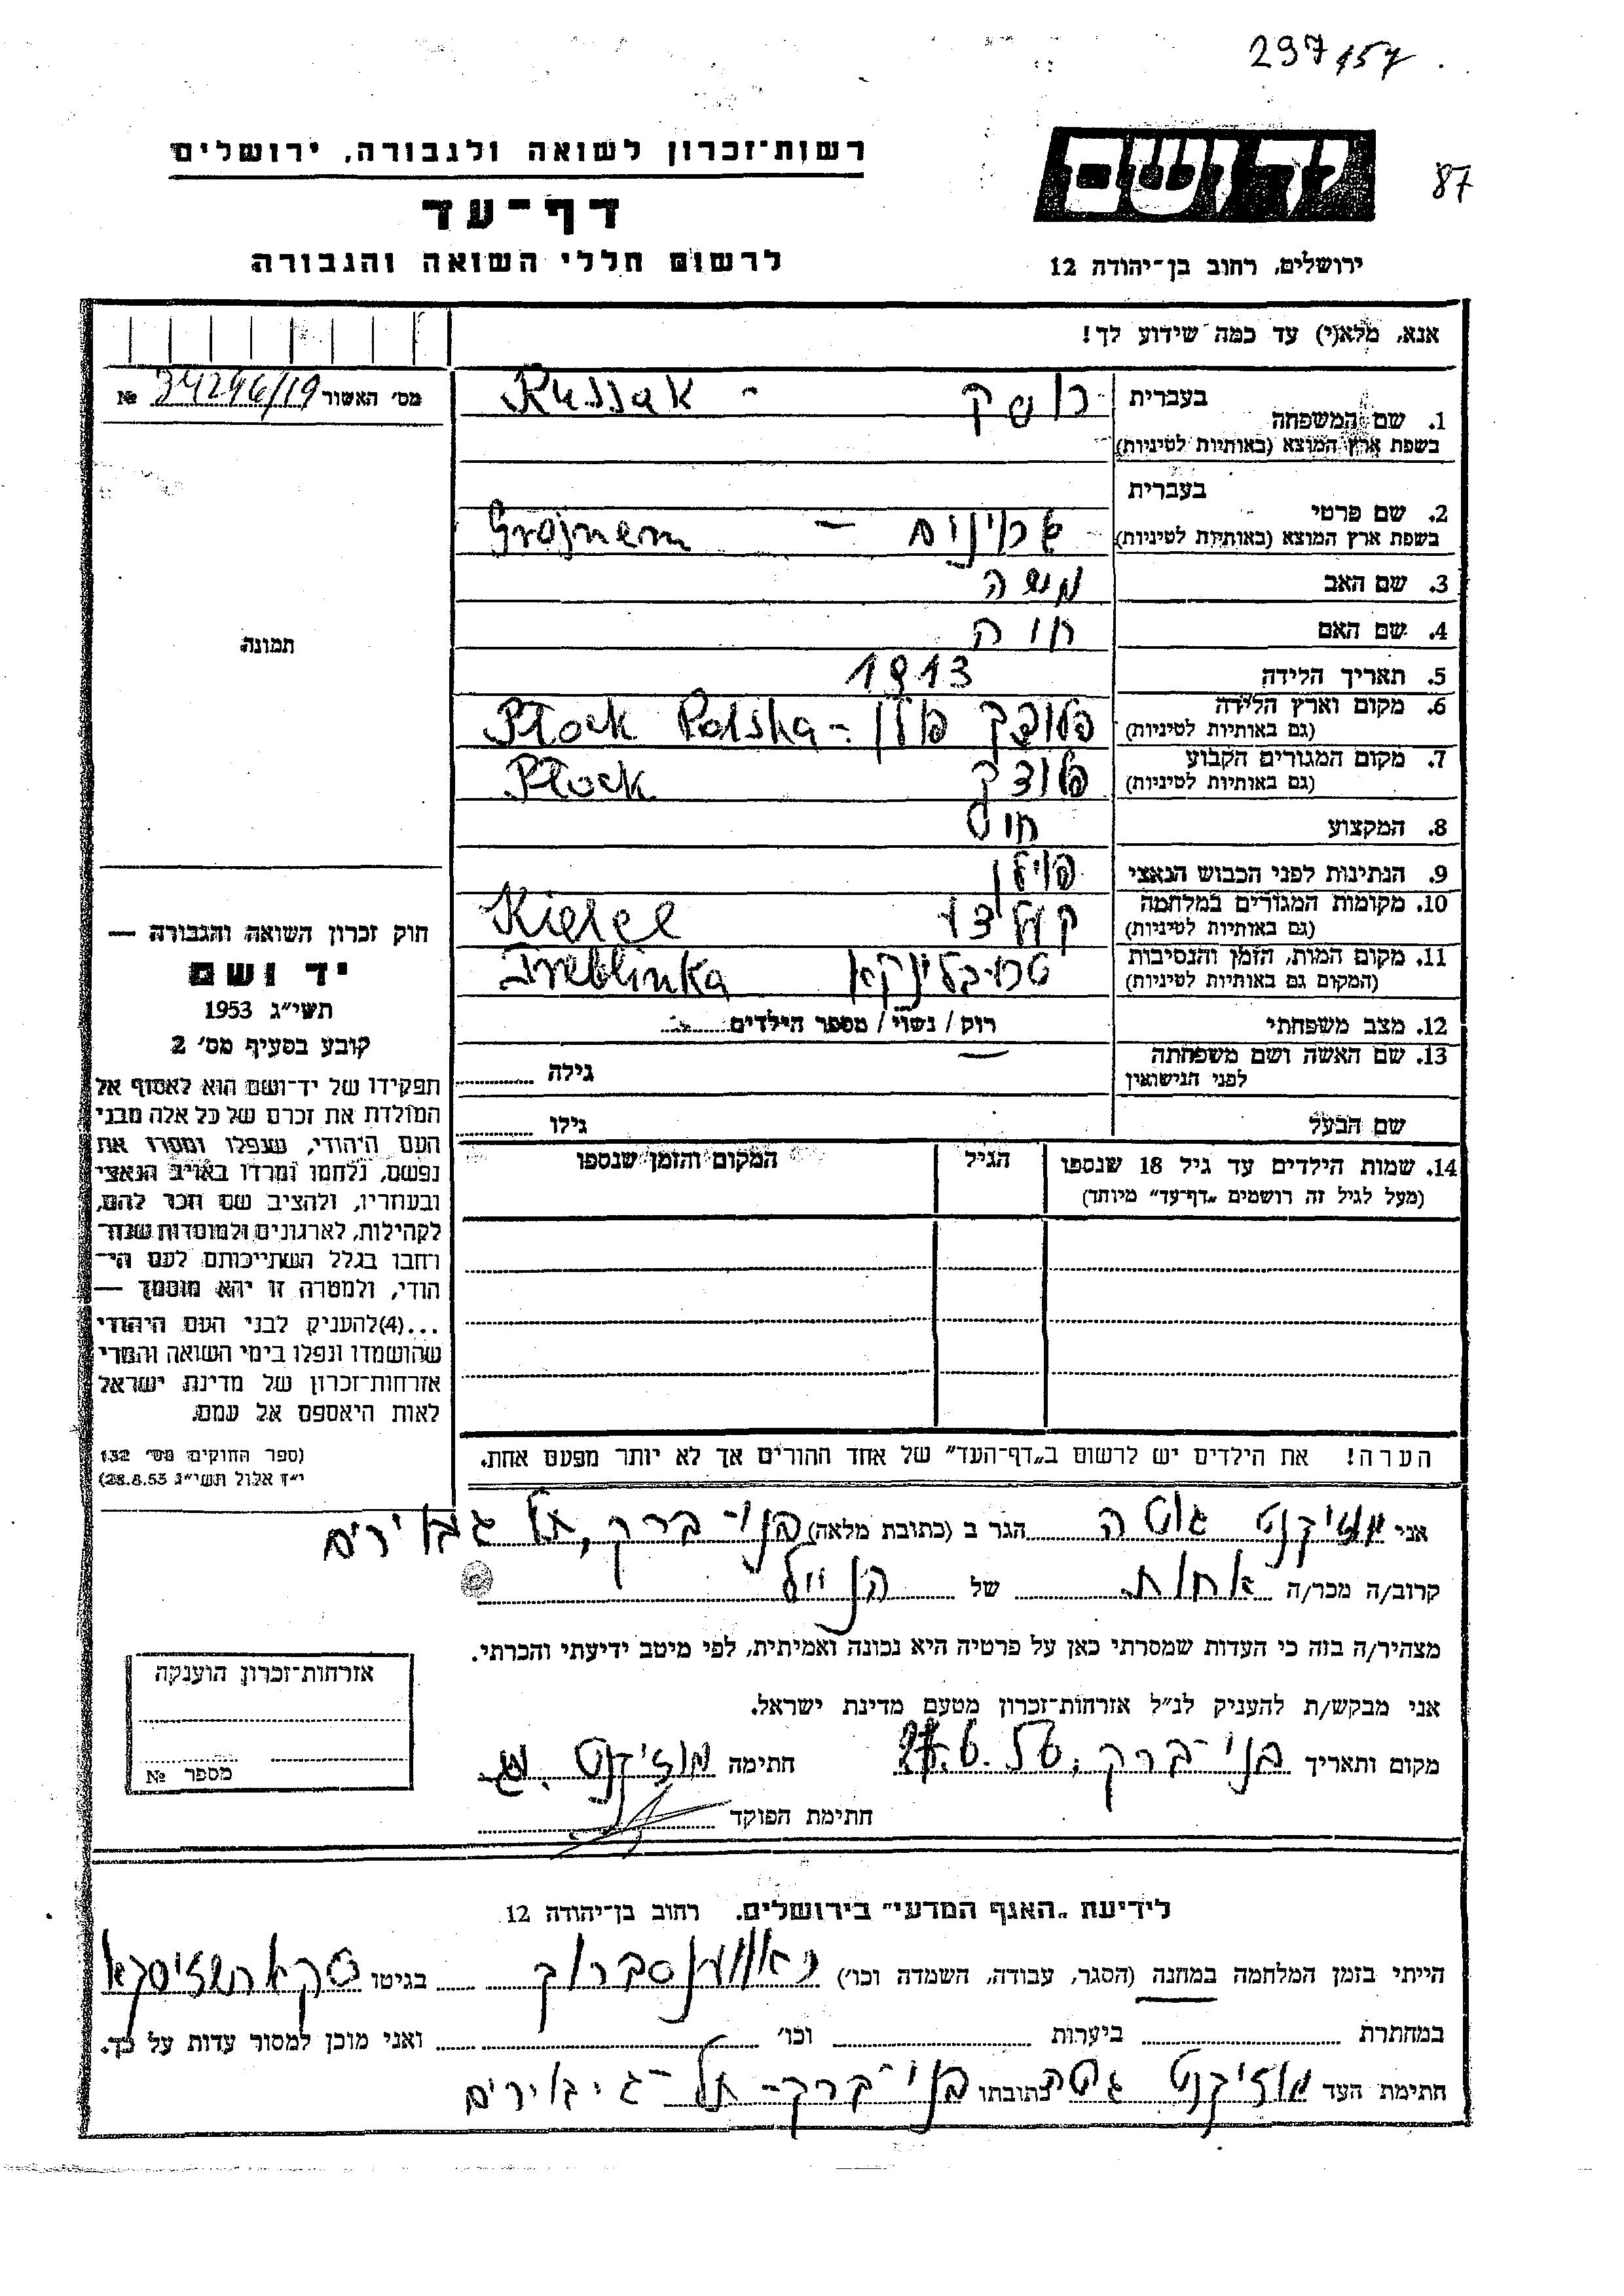 297/157
87
יד ושם
רשות־זכרון לשואה ולגבורה, ירושלים
דף־עד
לרשום חללי השואה והגבורה
ירושלים, רחוב בן־יהודה 12
אנא, מלא(י) עד כמה שידוע לך!
1. שם המשפחה בעברית רוסק - Russak
בשפת ארץ המוצא (באותיות לטיניות)
מס' האשור 34296/19 №
2. שם פרטי בעברית
בשפת ארץ המוצא (באותיות לטיניות) – Grojnem
3. שם האב משה
4. שם האם חוה
תמונה
5. תאריך הלידה 1913
6. מקום וארץ הלידה פלוצק פולין - Płock Polska
(גם באותיות לטיניות)
7. מקום המגורים הקבוע פלוצק Płock
(גם באותיות לטיניות)
8. המקצוע
9. הנתינות לפני הכבוש הנאצי פולין
10. מקומות המגורים במלחמה Kielce
(גם באותיות לטיניות)
11. מקום המות, הזמן והנסיבות טרובלינקא Treblinka
(המקום גם באותיות לטיניות)
12. מצב משפחתי רוק / נשוי / מספר הילדים
13. שם האשה ושם משפחתה
לפני הנישואין גילה
שם הבעל גילו
14. שמות הילדים עד גיל 18 שנספו הגיל המקום והזמן שנספו
(מעל לגיל זה רושמים „דף־עד" מיוחד)
חוק זכרון השואה והגבורה —
יד ושם
תשי"ג 1953
קובע בסעיף מס' 2
תפקידו של יד־ושם הוא לאסוף אל
המולדת את זכרם של כל אלה מבני
העם היהודי, שנפלו ומסרו את
נפשם, נלחמו ומרדו באויב הנאצי
ובעוזריו, ולהציב שם וזכר להם,
לקהילות, לארגונים ולמוסדות שנח־
רחבו בגלל השתייכותם לעם הי־
הודי, ולמטרה זו יהא מוסמך —
...(4)להעניק לבני העם היהודי
שהושמדו ונפלו בימי השואה והמרי
אזרחות־זכרון של מדינת ישראל
לאות היאספם אל עמם.
(ספר החוקים מס' 132
י"ז אלול תשי"ג 28.8.53)
הערה! את הילדים יש לרשום ב„דף־העד" של אחד ההורים אך לא יותר מפעם אחת.
אני גוטה הגר ב (כתובת מלאה) בני-ברק, תל גבורים
קרוב/ה מכר/ה אחות של הנ"ל
מצהיר/ה בזה כי העדות שמסרתי כאן על פרטיה היא נכונה ואמיתית, לפי מיטב ידיעתי והכרתי.
אני מבקש/ת להעניק לנ"ל אזרחות־זכרון מטעם מדינת ישראל.
מקום ותאריך בני-ברק, חתימה
חתימת הפוקד
אזרחות־זכרון הוענקה
מספר №
לידיעת „האגף המדעי" בירושלים. רחוב בן־יהודה 12
הייתי בזמן המלחמה במחנה (הסגר, עבודה, השמדה וכו') ראווענסברוק בגיטו
במחתרת ביערות וכו' ואני מוכן למסור עדות על כך.
חתימת העד גוטה כתובתו בני-ברק-תל-גיבורים